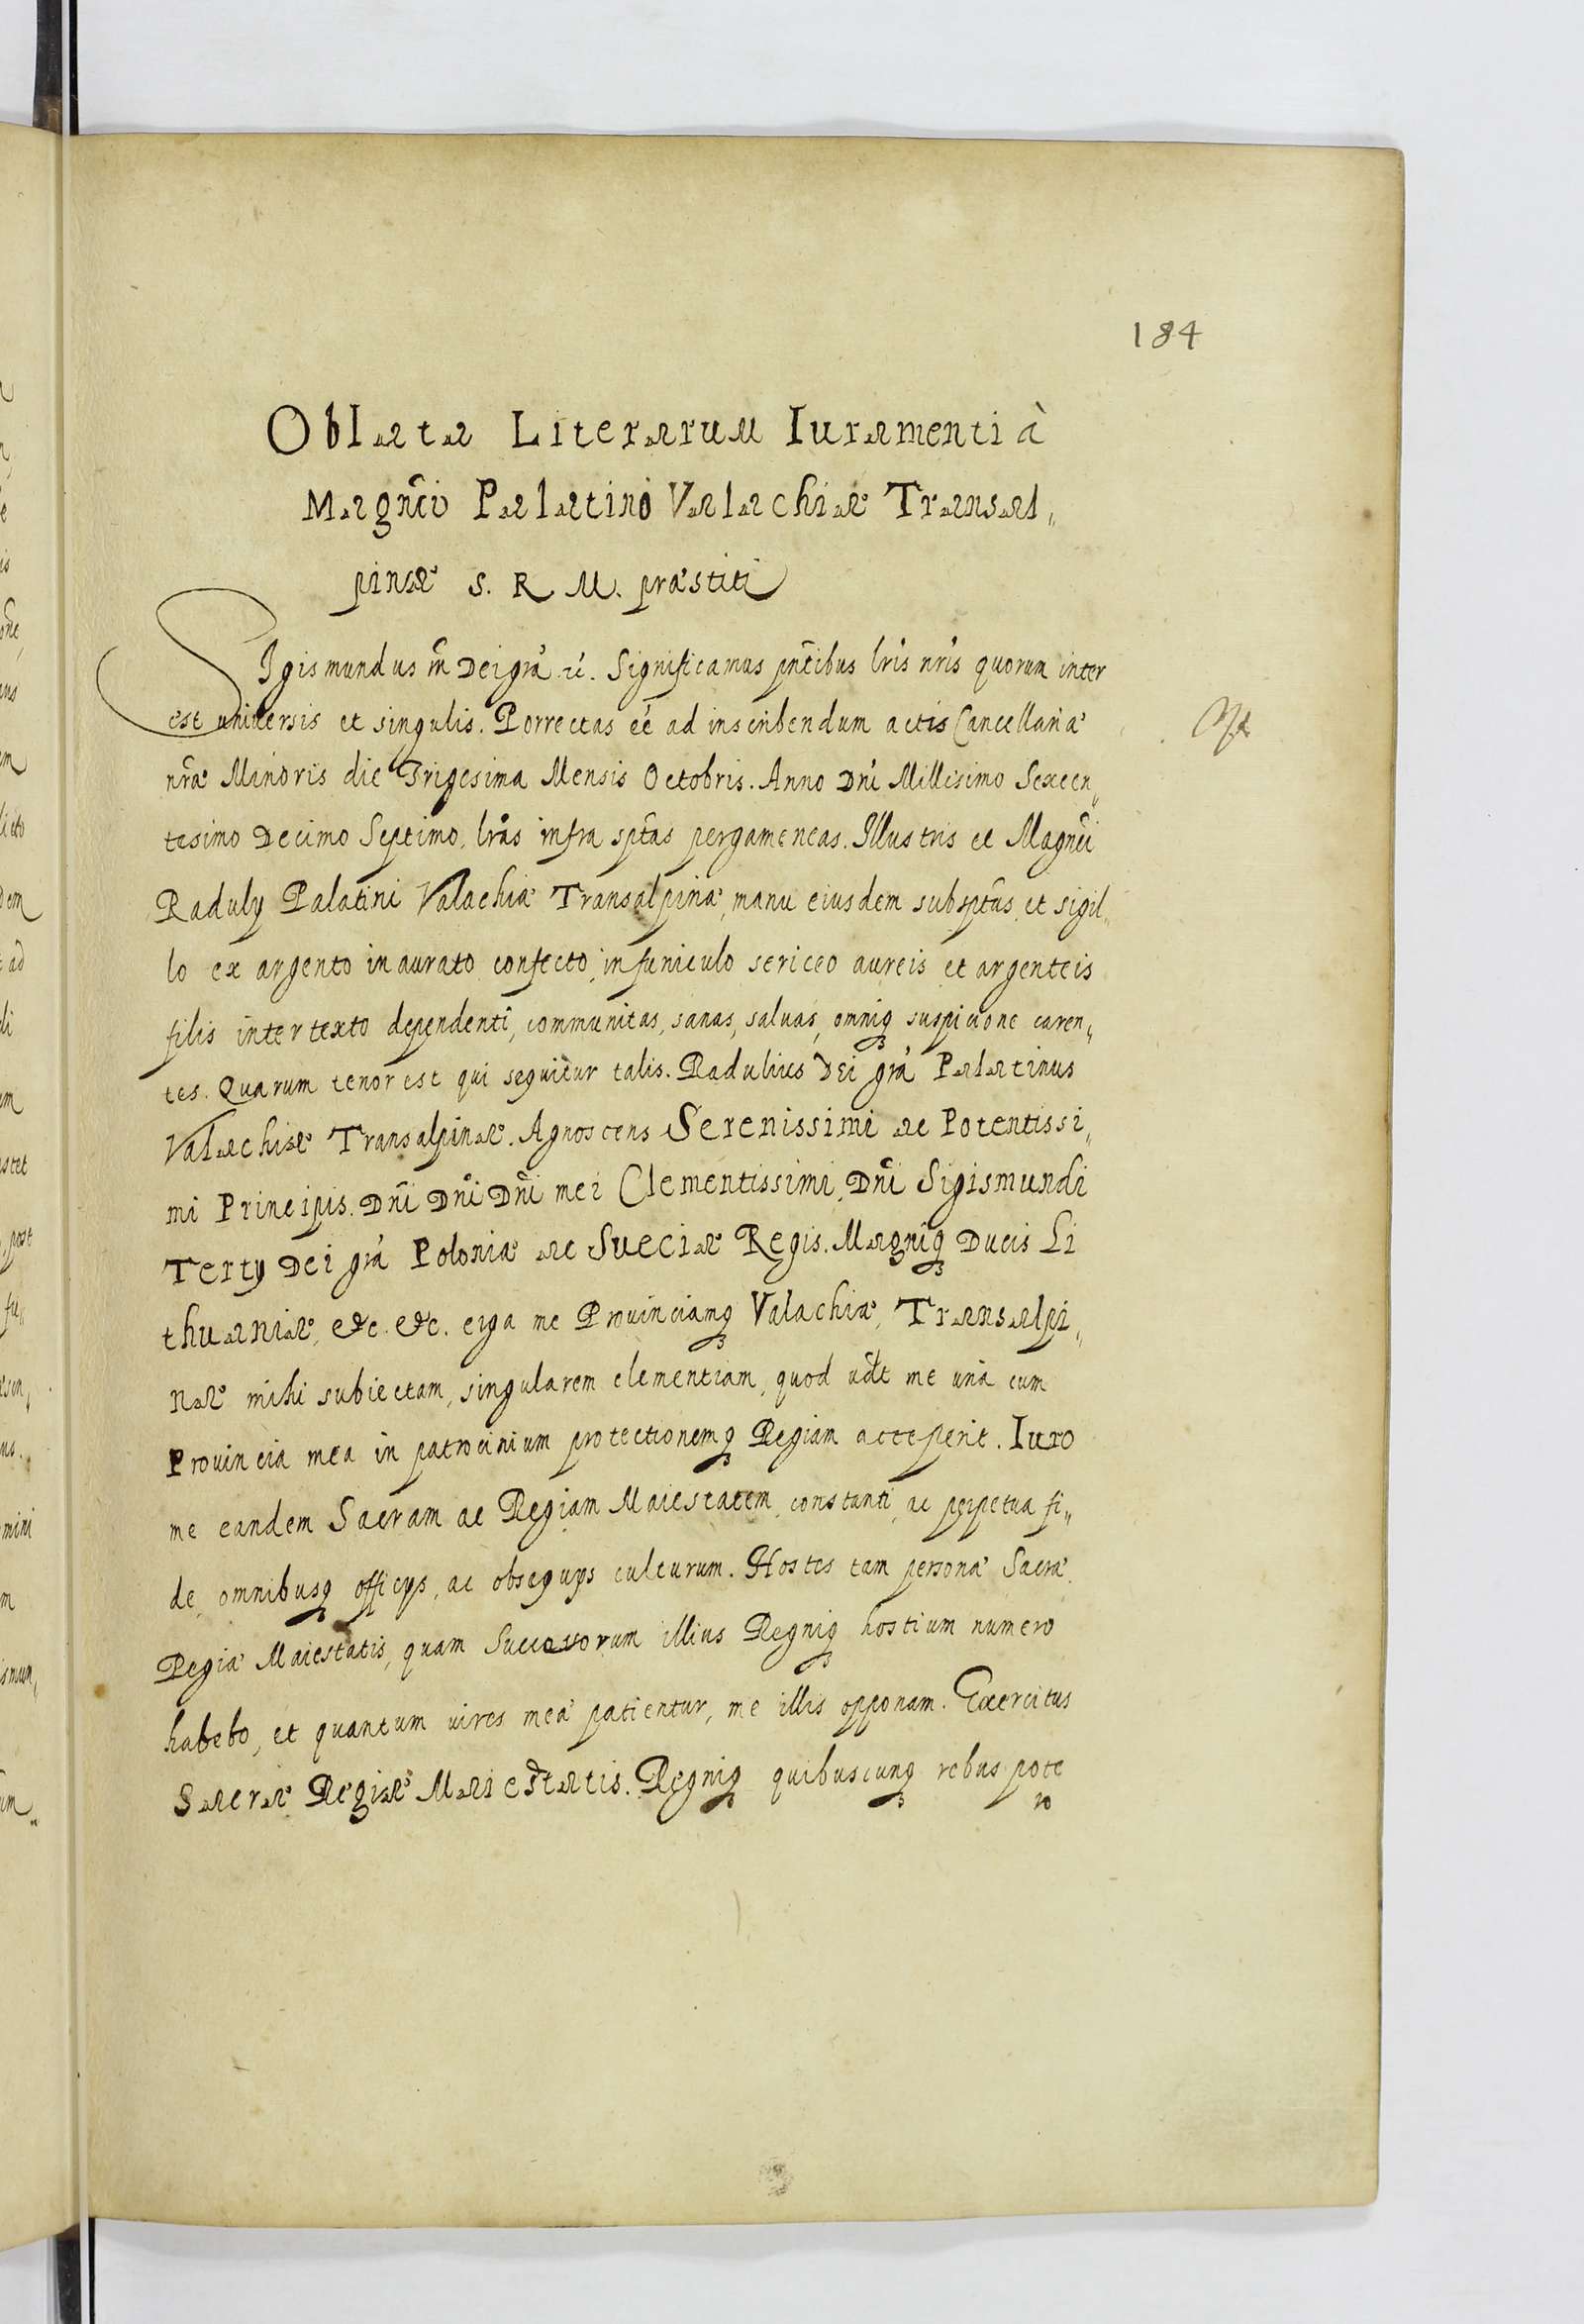 184
Oblata Literarum Iuramenti à
Magnĉo Palatino Valachiæ Transal„
pinæ S. R. M. præstiti
SIgismundus III Dei gra̓ &c̓. Significamus pn̄tibus lris̓ nris̓ quorum inter
est uniuersis et singulis. Porrectas eē ad inscribendum actis Cancellariæ
nræ̓ Minoris die Trigesima Mensis Octobris. Anno Dni̓ Millisimo Sexcen„
tesimo Decimo Septimo, lra̓s infra sp̄tas pergameneas. Illustris et Magnĉi
Raduly Palatini Valachiæ Transalpinæ, manu eiusdem subsp̄tas et sigil„
lo ex argento inaurato confecto, in funiculo sericeo aureis et argenteis
filis intertexto dependenti, communitas, sanas, saluas, omniq suspicione caren„
tes. Quarum tenor est qui sequitur talis. Radulius Dei gra̓ Palatinus
Valachiæ Transalpinæ. Agnoscens Serenissimi ac Potentissi„
mi Principis. Dn̄i Dn̄i Dn̄i mei Clementissimi, Dn̄i Sigismundi
Tertÿ Dei gra̓ Poloniæ ac Sueciæ Regis. Magniq Ducis Li
thuaniæ, etc. etc. erga me Prouinciamq Valachiæ, Transalpi„
næ mihi subiectam, singularem clementiam, quod udt me unà cum
Prouincia mea in patrocinium protectionemq Regiam acceperit. Iuro
me eandem Sacram ac Regiam Maiestatem, constanti, ac perpetua fi„
de, omnibusq officÿs, ac obsequÿs culturum. Hostes tam personæ Sacræ
Regiæ Maiestatis, quam Successorum illius Regniq hostium numero
habebo, et quantum uires meæ patientur, me illis opponam. Exercitus
Sacræ Regiæ Maiestatis. Regniq quibuscunq rebus pote
ro